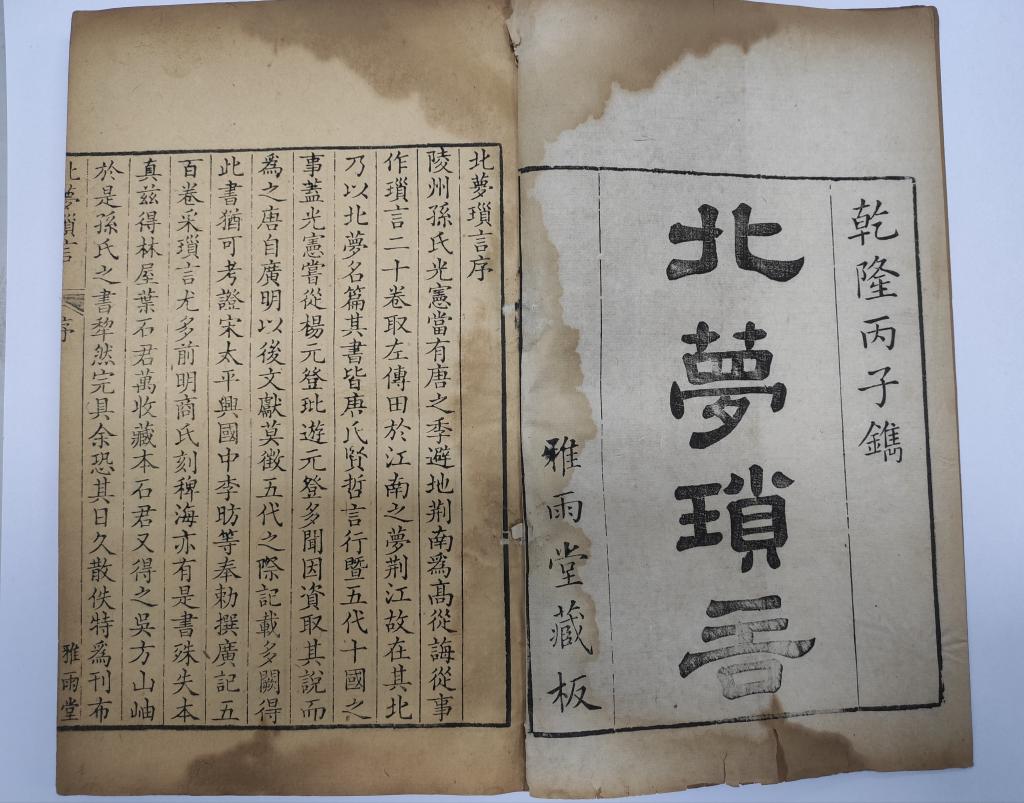 乾隆丙子鐫
北夢瑣言
雅雨堂藏板
北夢瑣言序
陵州孫氏光憲當有唐之季避地荆南爲高從誨從事
作瑣言二十卷取左傳田於江南之夢荆江故在其北
乃以北夢名篇其書皆唐氏賢哲言行暨五代十國之
事蓋光憲嘗從楊元登玭遊元登多聞因資取其說而
爲之唐自廣明以後文獻莫徵五代之際記載多闕得
此書猶可考證宋太平興國中李昉等奉勅撰廣記五
百卷采瑣言尤多前明商氏刻稗海亦有是書殊失本
真兹得林屋葉石君萬收藏本石君又得之吳方山岫
於是孫氏之書犂然完具余恐其日久散佚特爲刊布
北夢瑣言 序 雅雨堂